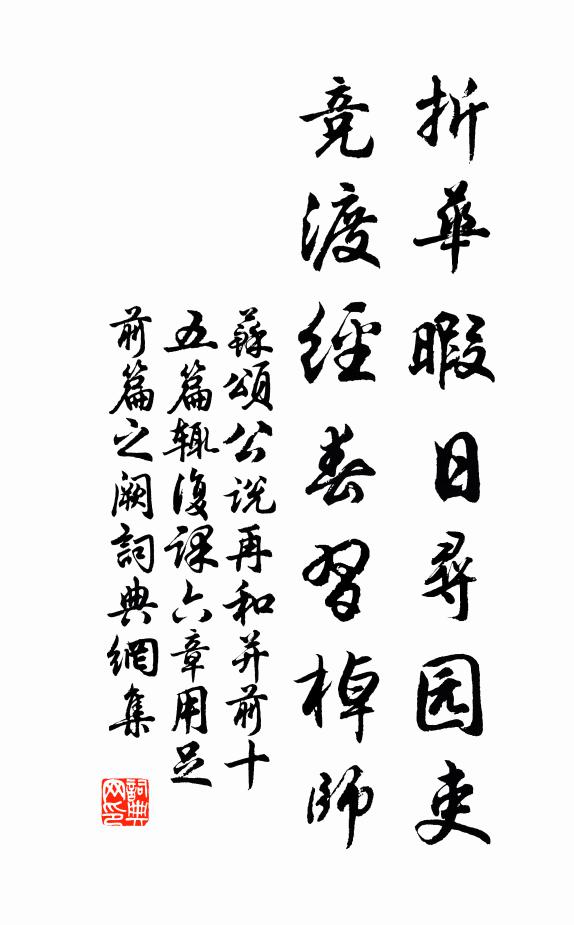 折華暇日尋园吏
竞渡經春習棹師
蘇頌公説再和并前十
五篇辄復課六章用足
前篇之阙詞典網集
詞典网印